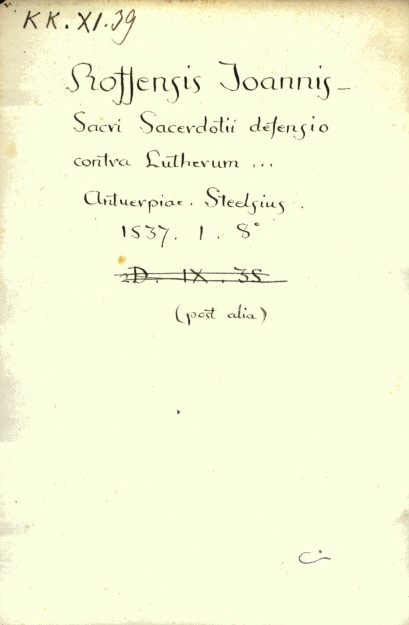 KK.XI.39
Roffensis Joannis_
Sacri Sacerdotii defensio
contra Lutherum ...
Antuerpiae. Steelsius.
1537. 1. 8°
D. IX. 38
(post alia)